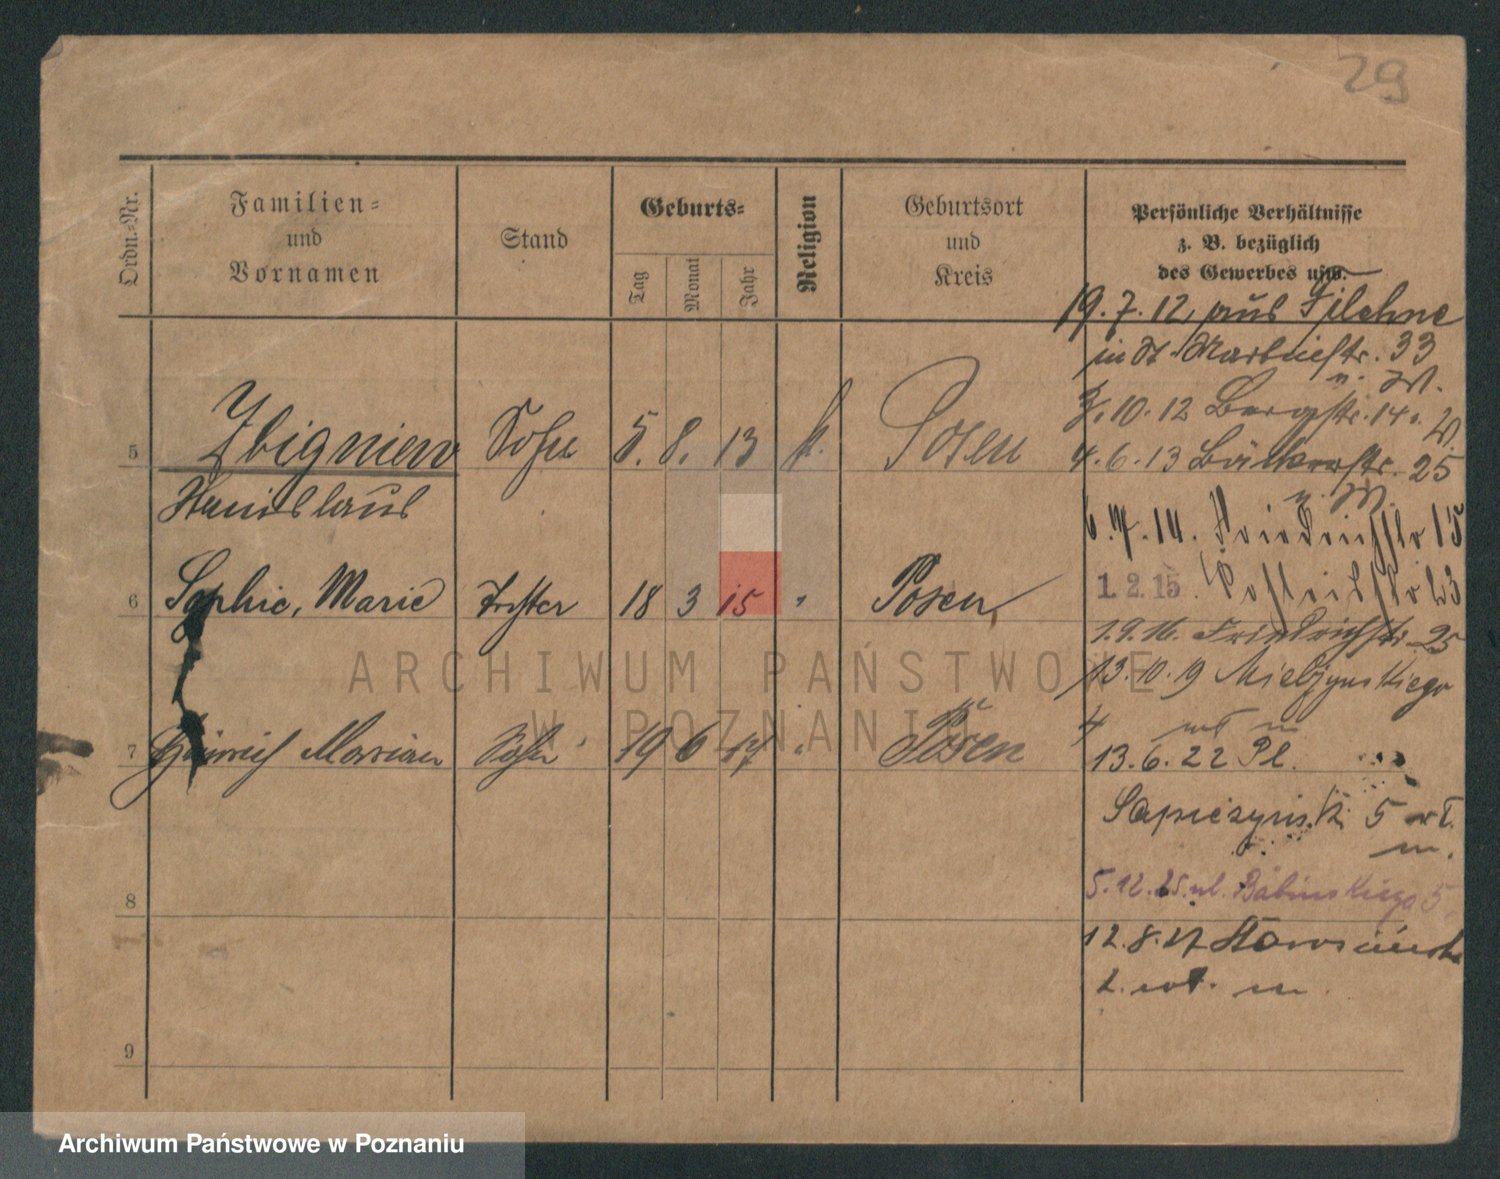 29
Ordn.-Nr.
Familien-
und
Vornamen
Stand
Geburts-
Tag
Monat
Jahr
Religion
Geburtsort
und
Kreis
Persönliche Verhältnisse
z. B. bezüglich
des Gewerbes usw.
19.7.12, aus Filehne
in St. Martinstr. 33
u. W.
3.10.12 Bergstr. 14 u. W.
5 Zbigniew Sohn 5. 8. 13 k. Posen
4.6.13 Bäckerstr. 25
u. W.
Stanislaus
6.7.14. Friedrichstr 15
6 Sophie, Marie Tochter 18 3 15 " Posen
1.2.15.
1.9.16. Friedrichstr. 25
13.10.19 Mielżynskiego
4 wł m
7 Heinrich Marian Sohn 19 6 17 " Posen
13.6.22 Pl.
Sapieżynsk 5 wł.
m.
8
5.12.25. ul. Babinskiego 5
12.8.27
2. wł. m.
9
ARCHIWUM PAŃSTWOWE
W POZNANIU
Archiwum Państwowe w Poznaniu